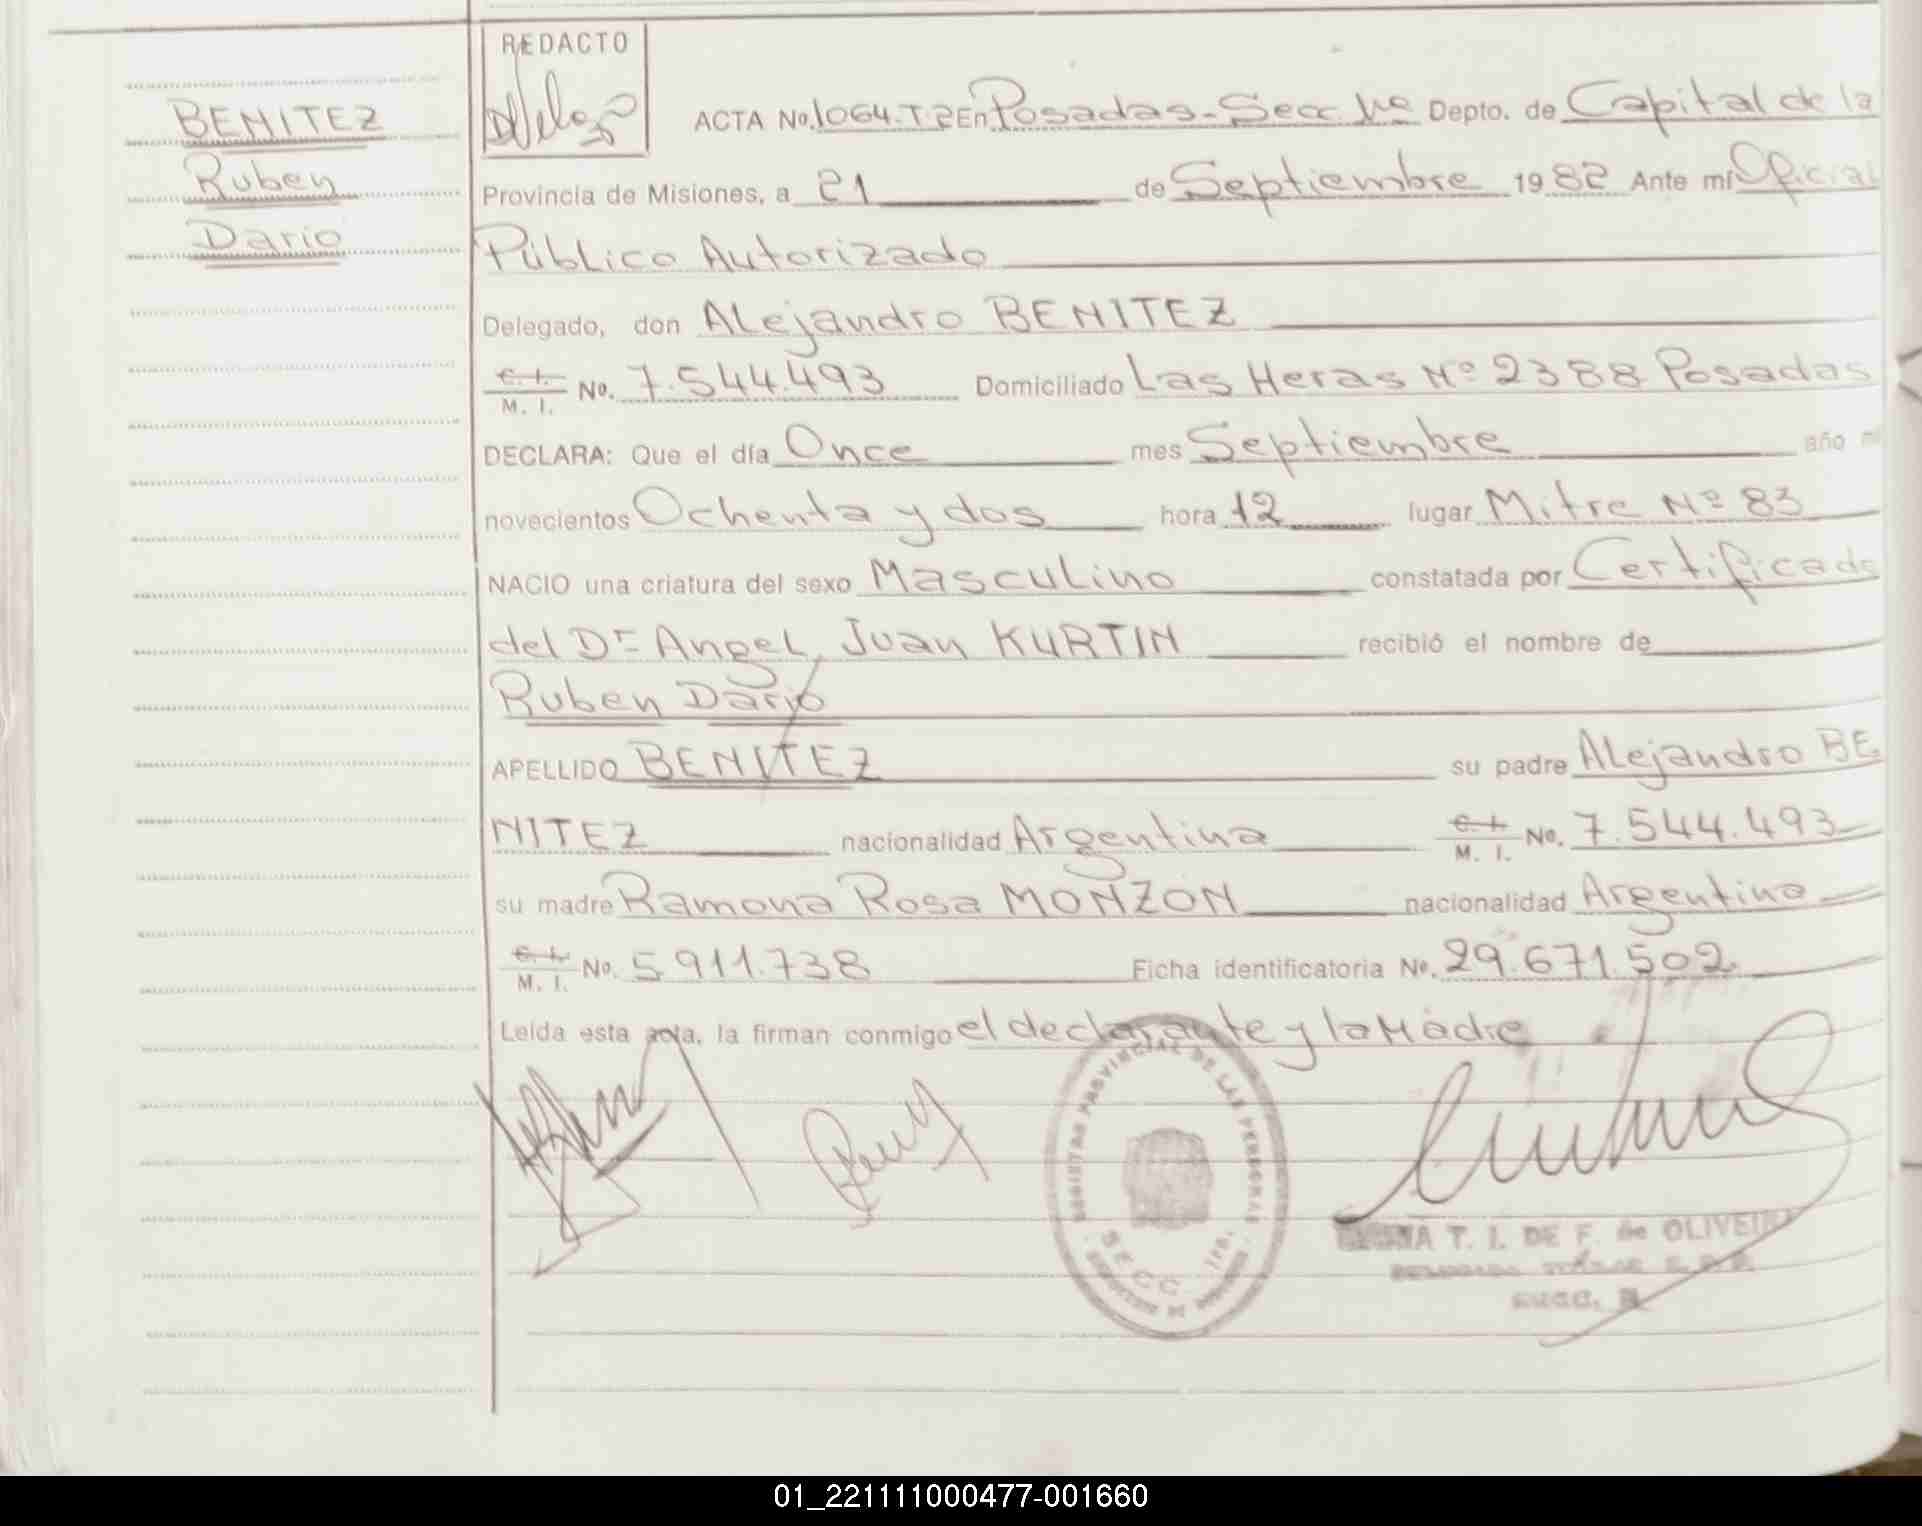 BENITEZ
Ruben
Dario
REDACTO
ACTA No. 1064.T.2 En Posadas-Secc. 1ra Depto. de Capital de la
Provincia de Misiones, a 21 de Septiembre 1982 Ante mí Oficial
Público Autorizado
Delegado, don Alejandro BENITEZ
C. I.
M. I. No. 7.544.493 Domiciliado Las Heras Nº 2388 Posadas
DECLARA: Que el día Once mes Septiembre año mi
novecientos Ochenta y dos hora 12 lugar Mitre Nº 83
NACIO una criatura del sexo Masculino constatada por Certificado
del Dr Angel Juan KURTIN recibió el nombre de
Ruben Dario
APELLIDO BENITEZ su padre Alejandro BE
NITEZ nacionalidad Argentina C. I. M. I. No. 7.544.493
su madre Ramona Rosa MONZON nacionalidad Argentina
C. I.
M. I. No. 5.911.738 Ficha identificatoria No. 29.671.502
Leída esta acta, la firman conmigo el declarante y la Madre
REGISTRO PROVINCIAL DE LAS PERSONAS
SECC. 1ra.
T. I. DE F. de OLIVEIRA
01_221111000477-001660